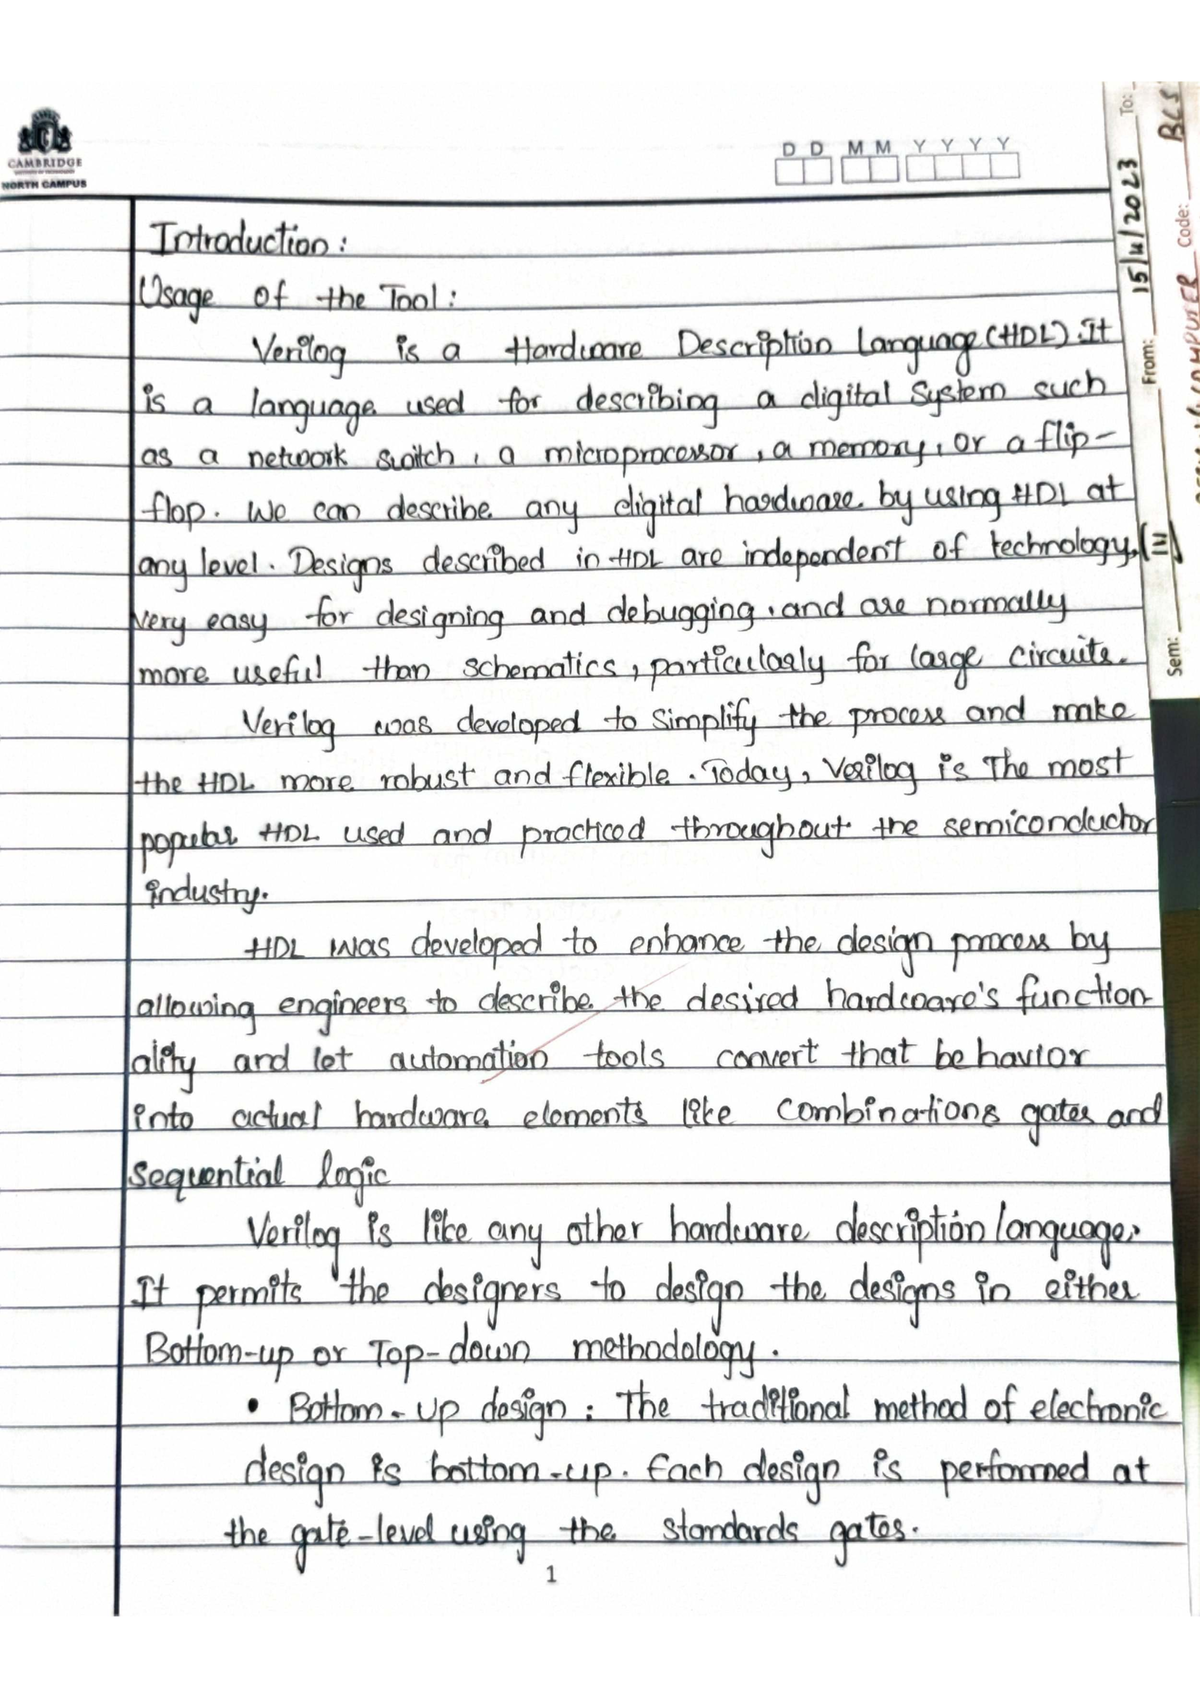 CAMBRIDGE
INSTITUTE OF TECHNOLOGY
NORTH CAMPUS
D D M M Y Y Y Y
Introduction:
Usage of the Tool:
Verilog is a Hardware Description Language (HDL). It
is a language used for describing a digital System such
as a network switch, a microprocessor, a memory, or a flip-
flop. We can describe any digital hardware by using HDL at
any level. Designs described in HDL are independent of technology,
very easy for designing and debugging, and are normally
more useful than schematics, particularly for large circuits.
Verilog was developed to simplify the process and make
the HDL more robust and flexible. Today, Verilog is The most
popular HDL used and practiced throughout the semiconductor
industry.
HDL was developed to enhance the design process by
allowing engineers to describe the desired hardware's function
ality and let automation tools convert that behavior
into actual hardware elements like combinations gates and
Sequential logic
Verilog is like any other hardware description language.
It permits the designers to design the designs in either
Bottom-up or Top-down methodology.
• Bottom-Up design: The traditional method of electronic
design is bottom-up. Each design is performed at
the gate-level using the standards gates.
1
Sem: IV From: 15/11/2023 To:
COMPUTER Code: BCS